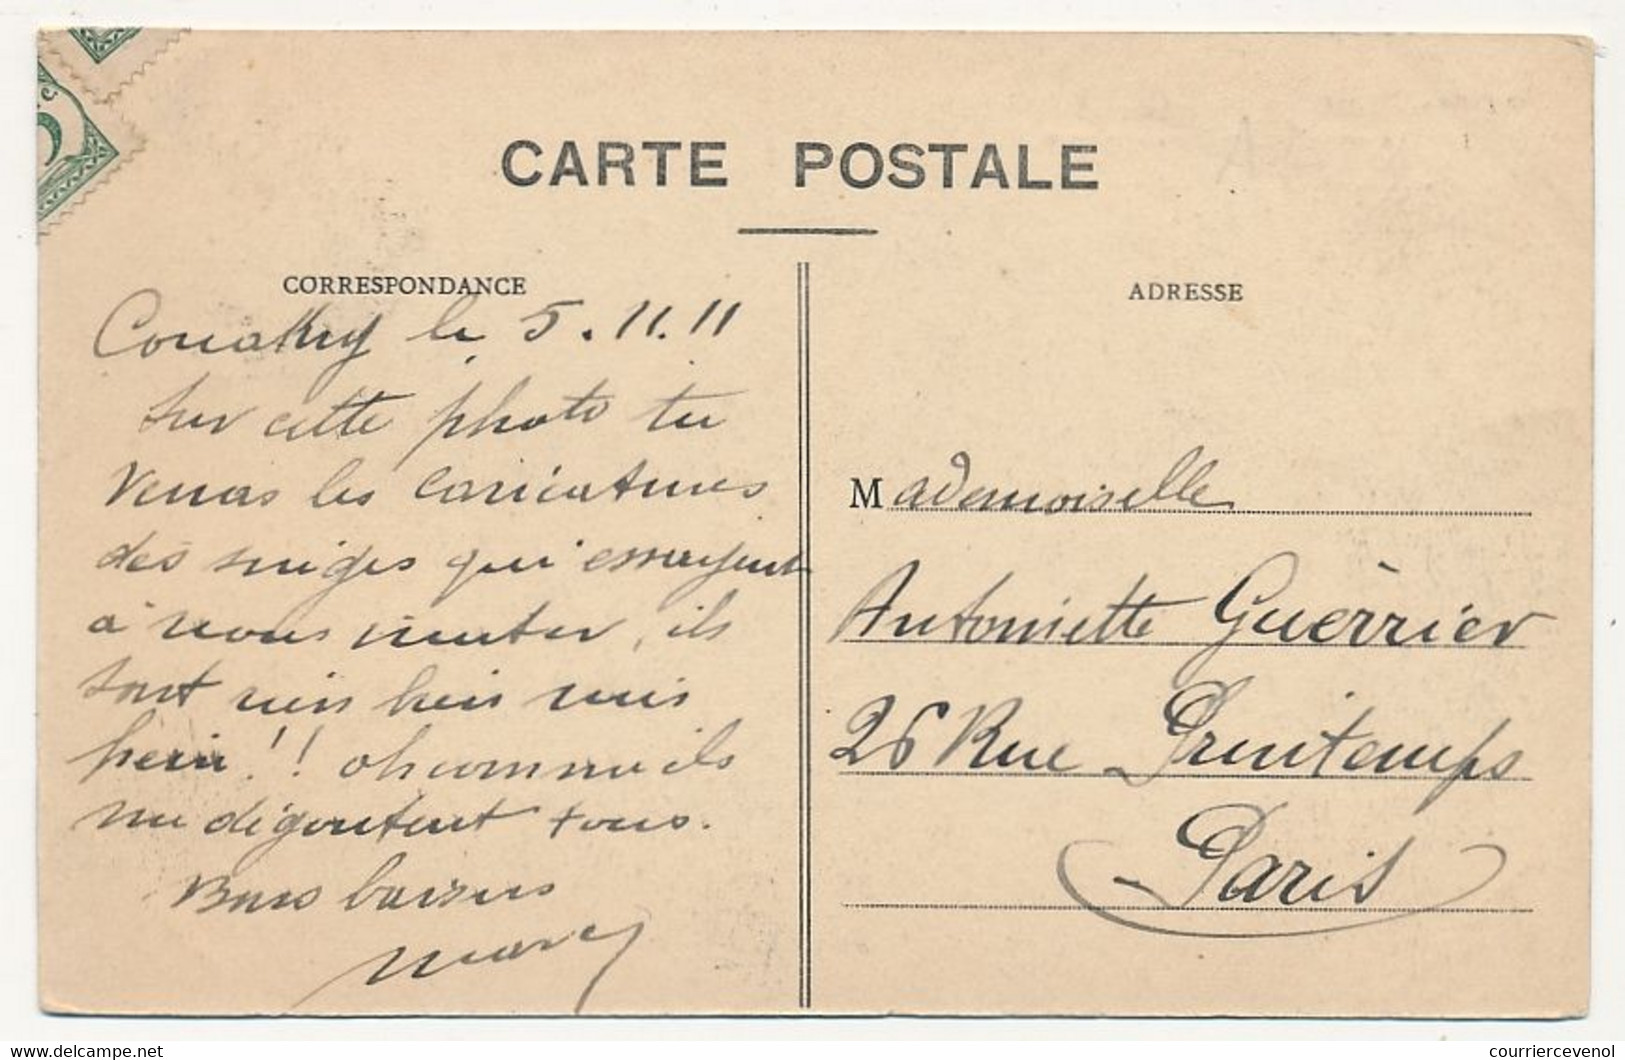 CARTE POSTALE
CORRESPONDANCE
Conakry le 5.11.11
Sur cette photo tu
verras les caricatures
des singes qui essayent
à nous imiter, ils
sont rien bien
hein!! oh comme ils
me dégoutent tous.
Bons baisers
Marc
ADRESSE
Mademoiselle
Antoniette Guèrrier
26 Rue Printemps
Paris
www.delcampe.net
courriercevenol